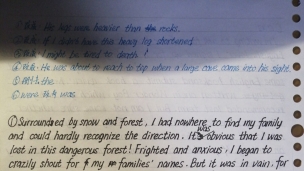 his legs were heavier than the rocks.
If I didn't have this heavy leg shortened
I might be tired to death!
He was about to reach to top when a large cave comes into his sight.
① Surrounded by snow and forest, I had nowhere to find my family
and could hardly recognize the direction. It was obvious that I was
lost in this dangerous forest! Frighted and anxious, I began to
crazily shout for my families' names. But it was in vain, for